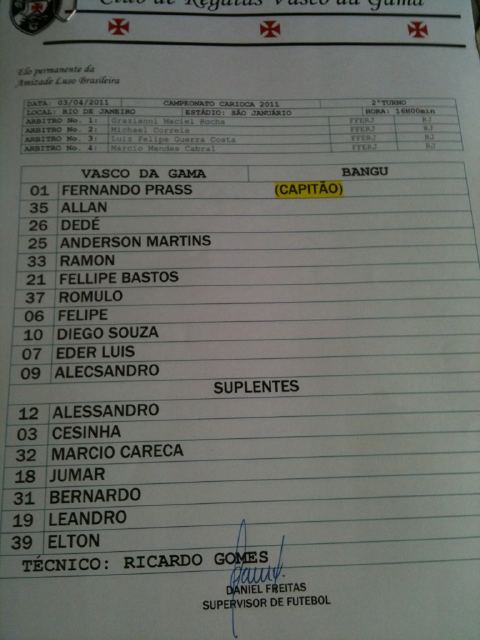 Club de Regatas Vasco da Gama
Elo permanente da
Amizade Luso Brasileira
DATA: 03/04/2011 CAMPEONATO CARIOCA 2011 2ºTURNO
LOCAL: RIO DE JANEIRO ESTÁDIO: SÃO JANUÁRIO HORA: 16H00min
ARBITRO No. 1: Grasianni Maciel Rocha FFERJ RJ
ARBITRO No. 2: Michael Correia FFERJ RJ
ARBITRO No. 3: Luiz Felipe Guerra Costa FFERJ RJ
ARBITRO No. 4: Marcio Mendes Cabral FFERJ RJ
VASCO DA GAMA BANGU
01 FERNANDO PRASS (CAPITÃO)
35 ALLAN
26 DEDÉ
25 ANDERSON MARTINS
33 RAMON
21 FELLIPE BASTOS
37 ROMULO
06 FELIPE
10 DIEGO SOUZA
07 EDER LUIS
09 ALECSANDRO
SUPLENTES
12 ALESSANDRO
03 CESINHA
32 MARCIO CARECA
18 JUMAR
31 BERNARDO
19 LEANDRO
39 ELTON
TÉCNICO: RICARDO GOMES
DANIEL FREITAS
SUPERVISOR DE FUTEBOL